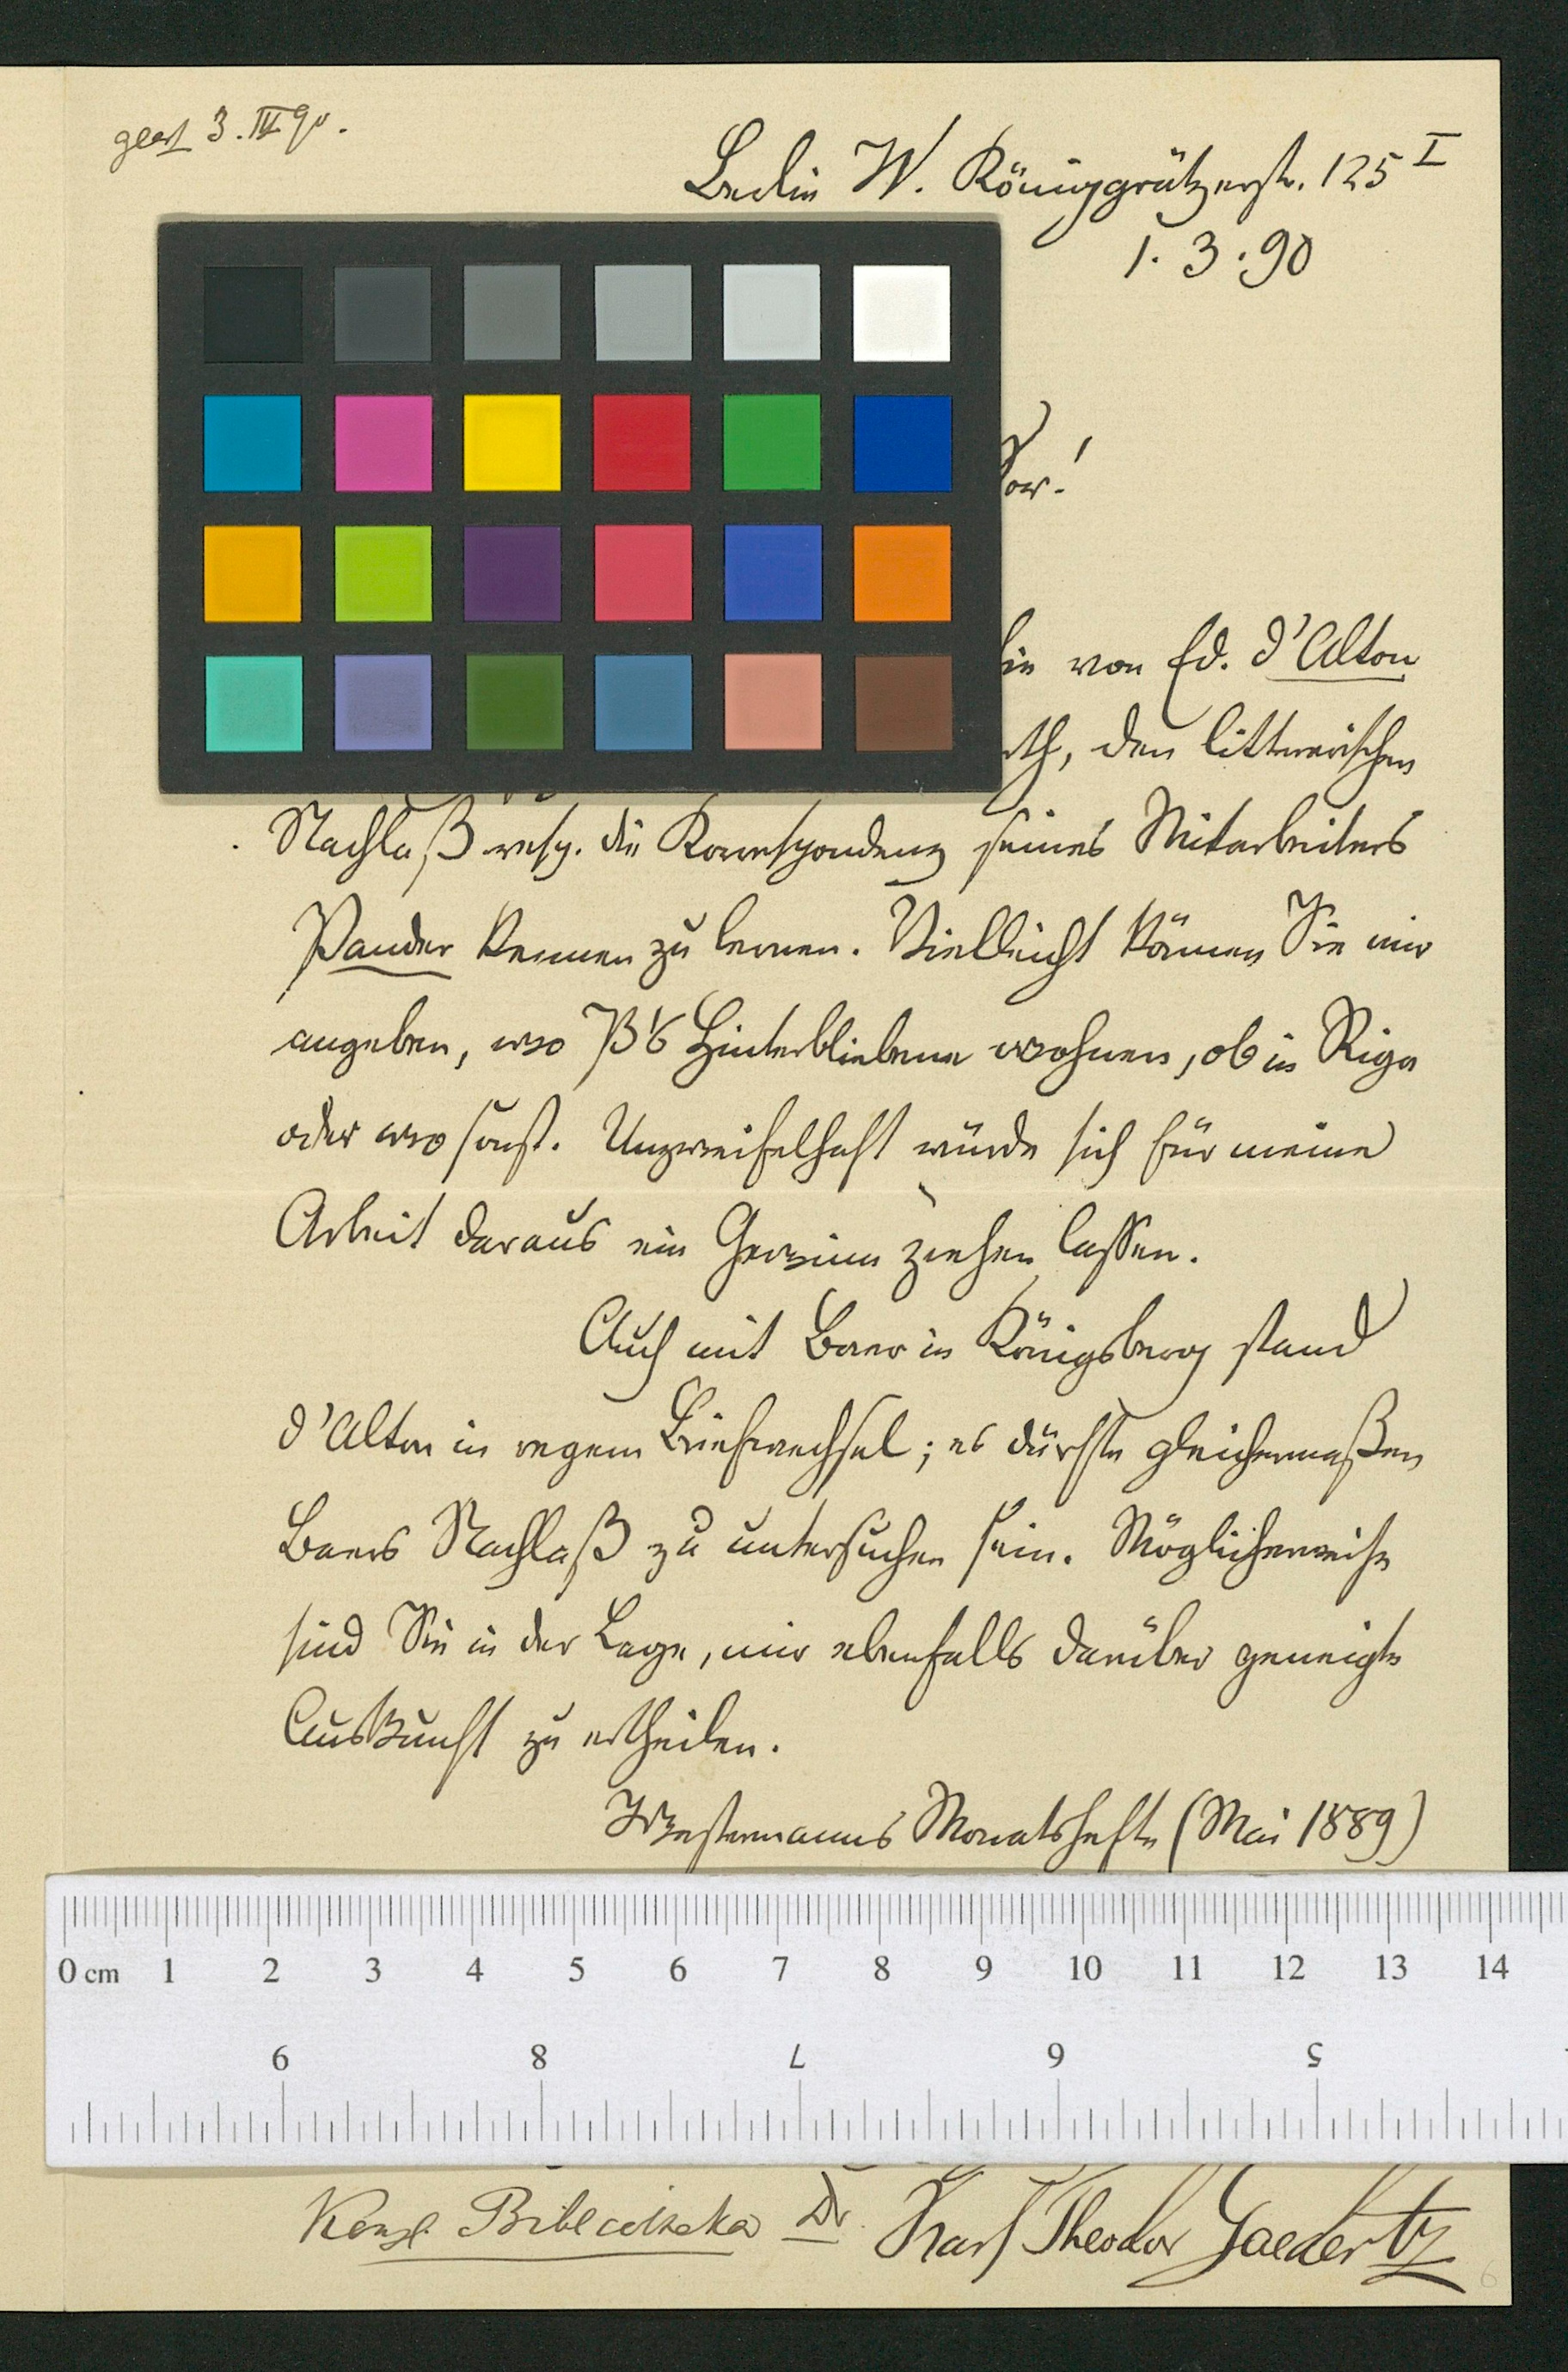 3. IV 90.
Berlin W. Königgrätzerstr. 125 I
1. 3. 90
von Ed. d'Alton
den litterarischen
Nachlaß resp. die Korrespondenz seines Mitarbeiters
Pander kennen zu lernen. Vielleicht können Sie mir
angeben, wo P's Hinterbliebene wohnen, ob in Riga
oder wo sonst. Unzweifelhaft würde sich für meine
Arbeit daraus ein Gewinn ziehen lassen.
Auch mit Baer in Königsberg stand
d'Alton in regem Briefwechsel; es dürfte gleichermaßen
Baers Nachlaß zu untersuchen sein. Möglicherweise
sind Sie in der Lage, mir ebenfalls darüber geneigte
Auskunft zu ertheilen.
Westermanns Monatshefte (Mai 1889)
0 cm 1 2 3 4 5 6 7 8 9 10 11 12 13 14
9 8 7 6 5
Dr. Karl Theodor Gaedertz